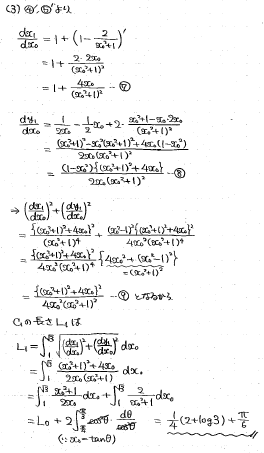 (3) ④', ⑤' より
dx₁/dx₀ = 1 + (1 - 2/(x₀²+1))'
= 1 + 2·2x₀/(x₀²+1)²
= 1 + 4x₀/(x₀²+1)² … ⑦
dy₁/dx₀ = 1/(2x₀) - 1/2 x₀ + 2· (x₀²+1-x₀·2x₀)/(x₀²+1)²
= ((x₀²+1)²-x₀²(x₀²+1)²+4x₀(1-x₀²))/(2x₀(x₀²+1)²)
= (1-x₀²){(x₀²+1)²+4x₀}/(2x₀(x₀²+1)²) … ⑧
→ (dx₁/dx₀)² + (dy₁/dx₀)²
= {(x₀²+1)²+4x₀}²/(x₀²+1)⁴ + (x₀²-1)²{(x₀²+1)²+4x₀}²/(4x₀²(x₀²+1)⁴)
= {(x₀²+1)²+4x₀}²/(4x₀²(x₀²+1)⁴) {4x₀²+(x₀²-1)²}
=(x₀²+1)²
= {(x₀²+1)²+4x₀}²/(4x₀²(x₀²+1)²) … ⑨ となるから
C₁の長さ L₁ は
L₁ = ∫₁^√3 √((dx₁/dx₀)²+(dy₁/dx₀)²) dx₀
= ∫₁^√3 ((x₀²+1)²+4x₀)/(2x₀(x₀²+1)) dx₀
= ∫₁^√3 (x₀²+1)/(2x₀) dx₀ + ∫₁^√3 2/(x₀²+1) dx₀
= L₀ + 2∫_{π/4}^{π/3} cos²θ · dθ/cos²θ = 1/4 (2+log3) + π/6
(∵ x₀=tanθ)